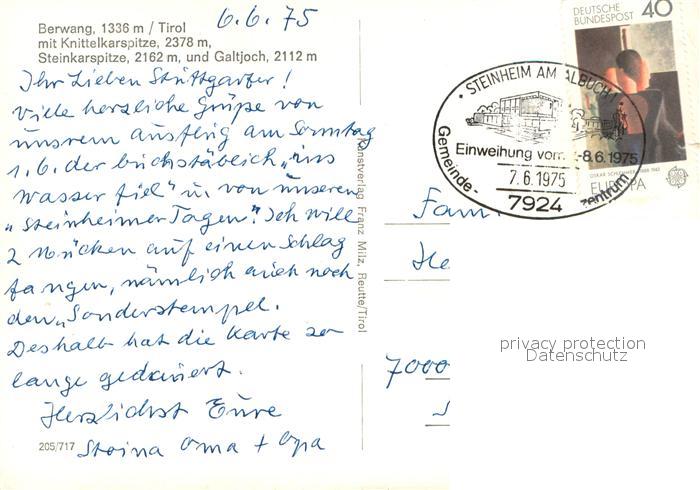 6.6.75
Berwang, 1336 m / Tirol
mit Knittelkarspitze, 2378 m,
Steinkarspitze, 2162 m, und Galtjoch, 2112 m
Ihr Lieben Stuttgarter!
Viele herzliche Grüße von
unsrem Ausflug am Sonntag
1.6. der buchstäblich „ins
Wasser fiel" u. von unseren
„Steinheimer Tagen". Ich will
2 Mücken auf einen Schlag
fangen, nämlich auch noch
den „Sonderstempel.
Deshalb hat die Karte so
lange gedauert.
Herzlichst Eure
Oma + Opa
205/717
Kunstverlag Franz Milz, Reutte/Tirol
DEUTSCHE
BUNDESPOST
40
OSKAR SCHLEMMER 1888-1943
EUROPA
STEINHEIM AM ALBUCH
Einweihung vom -8.6.1975
7.6.1975
Gemeinde-
zentrum
7924
Fam
He
7000
privacy protection
Datenschutz